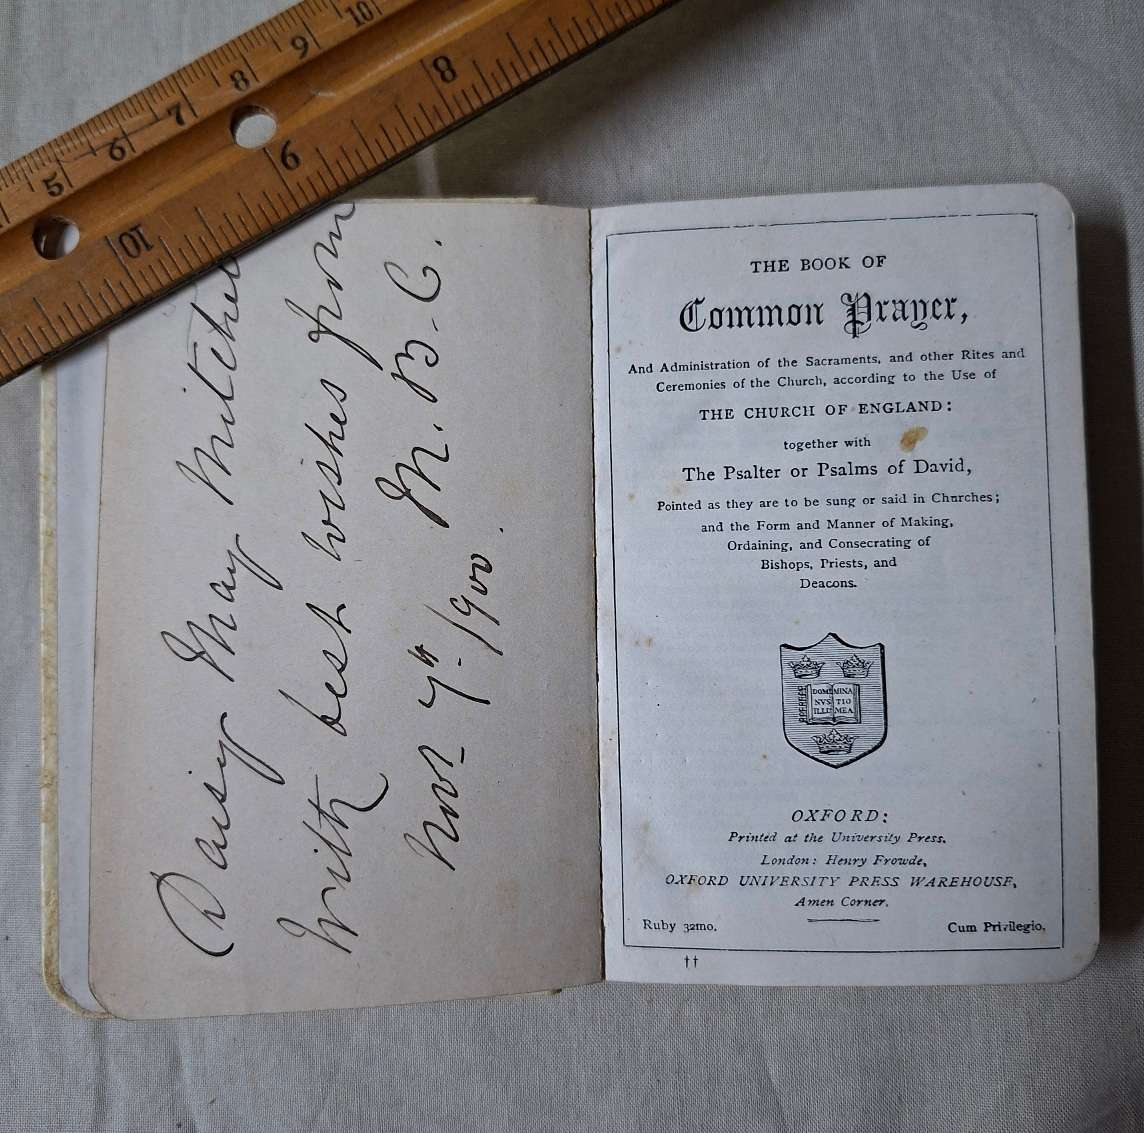 5 6 7 8 9 10
10 9 8
Daisy May Mitchell
With best wishes from
M. B. C.
Novr 7th 1900.
THE BOOK OF
Common Prayer,
And Administration of the Sacraments, and other Rites and
Ceremonies of the Church, according to the Use of
THE CHURCH OF ENGLAND:
together with
The Psalter or Psalms of David,
Pointed as they are to be sung or said in Churches;
and the Form and Manner of Making,
Ordaining, and Consecrating of
Bishops, Priests, and
Deacons.
DOMI MINA
NVS TIO
ILLU MEA
OXFORD:
Printed at the University Press.
London: Henry Frowde,
OXFORD UNIVERSITY PRESS WAREHOUSE,
Amen Corner.
Ruby 32mo.
Cum Privilegio.
††